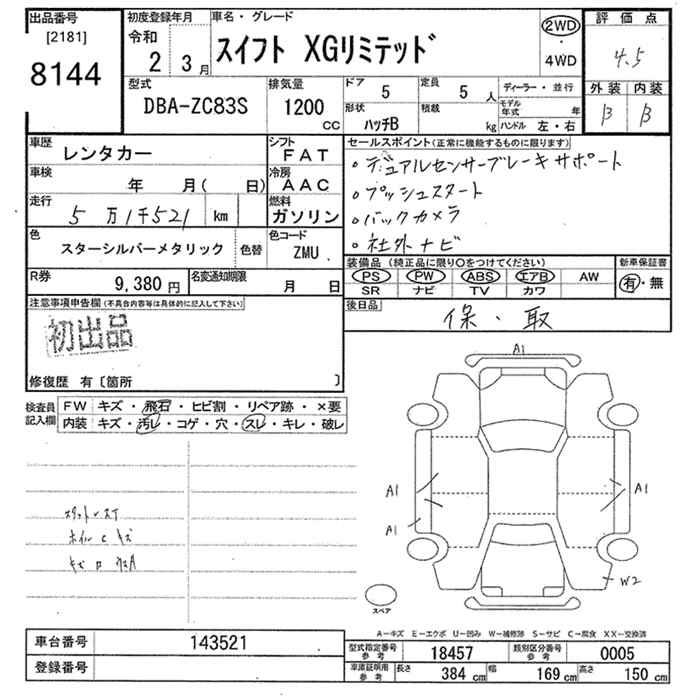 出品番号
[2181]
8144
初度登録年月
令和 2 3月
車名・グレード
スイフト XGリミテッド
2WD
4WD
評価点
4.5
外装 内装
B B
型式
DBA-ZC83S
排気量
1200 CC
ドア 5
形状 ハッチB
定員 5 人
積載 kg
ディーラー・並行
モデル年式 年
ハンドル 左・右
車歴
レンタカー
車検 年 月( 日)
走行 5万1千521 km
シフト FAT
冷房 AAC
燃料 ガソリン
色
スターシルバーメタリック
色替
色コード
ZMU
R券 9,380円
名変通知期限 月 日
セールスポイント(正常に機能するものに限ります)
○デュアルセンサーブレーキサポート
○プッシュスタート
○バックカメラ
○社外ナビ
装備品(純正品に限り○をつけてください)
PS PW ABS エアB AW
SR ナビ TV カワ
新車保証書
有・無
後日品
保・取
注意事項申告欄(不具合内容等は具体的に記入して下さい)
初出品
修復歴 有〔箇所 〕
検査員記入欄
FW キズ・飛石・ヒビ割・リペア跡・×要
内装 キズ・汚レ・コゲ・穴・スレ・キレ・破レ
A1
A1
A1
A1
W2
スペア
A-キズ E-エクボ U-凹み W-補修跡 S-サビ C-腐食 XX-交換済
車台番号 143521
登録番号
型式指定番号参考 18457
類別区分番号参考 0005
車庫証明用参考
長さ 384 cm
幅 169 cm
高さ 150 cm